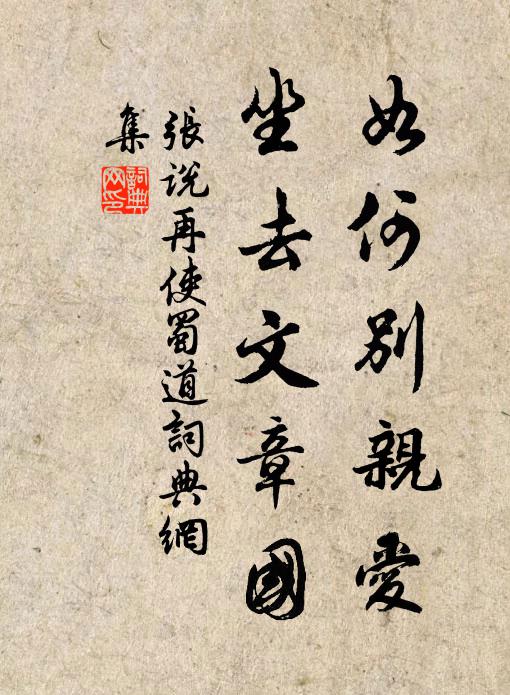 如何別親愛
坐去文章國
張說再使蜀道詞典網
集
詞典
网印